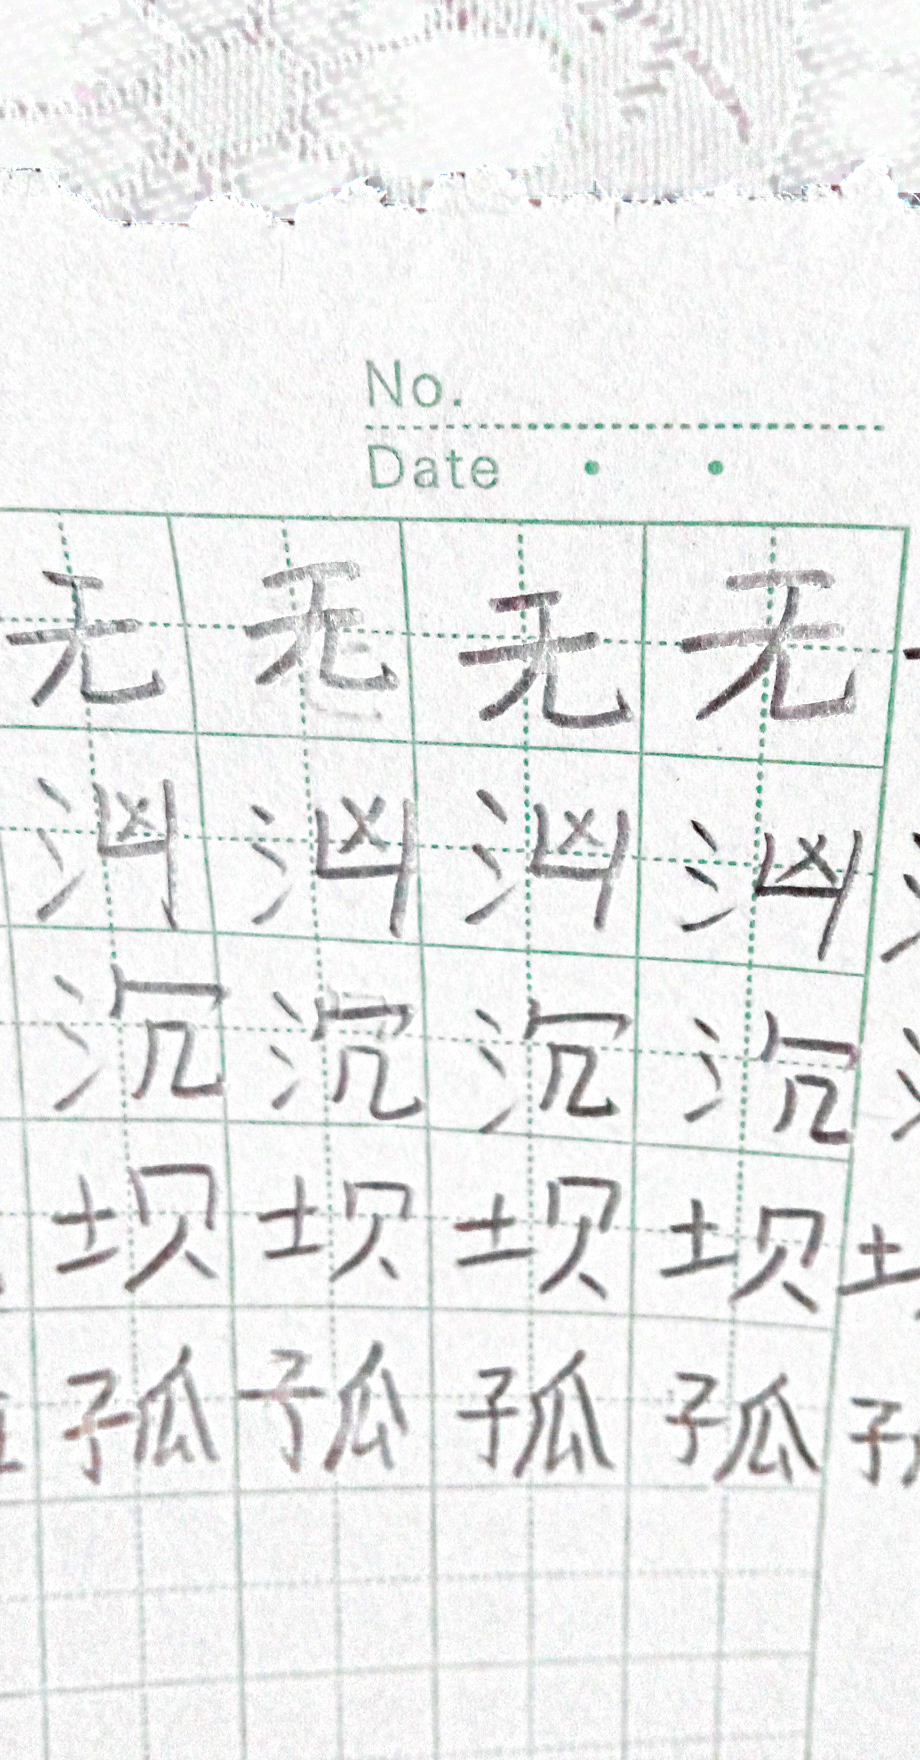 No.
Date
无 无 无 无
汹 汹 汹 汹
沉 沉 沉 沉
坝 坝 坝 坝
孤 孤 孤 孤